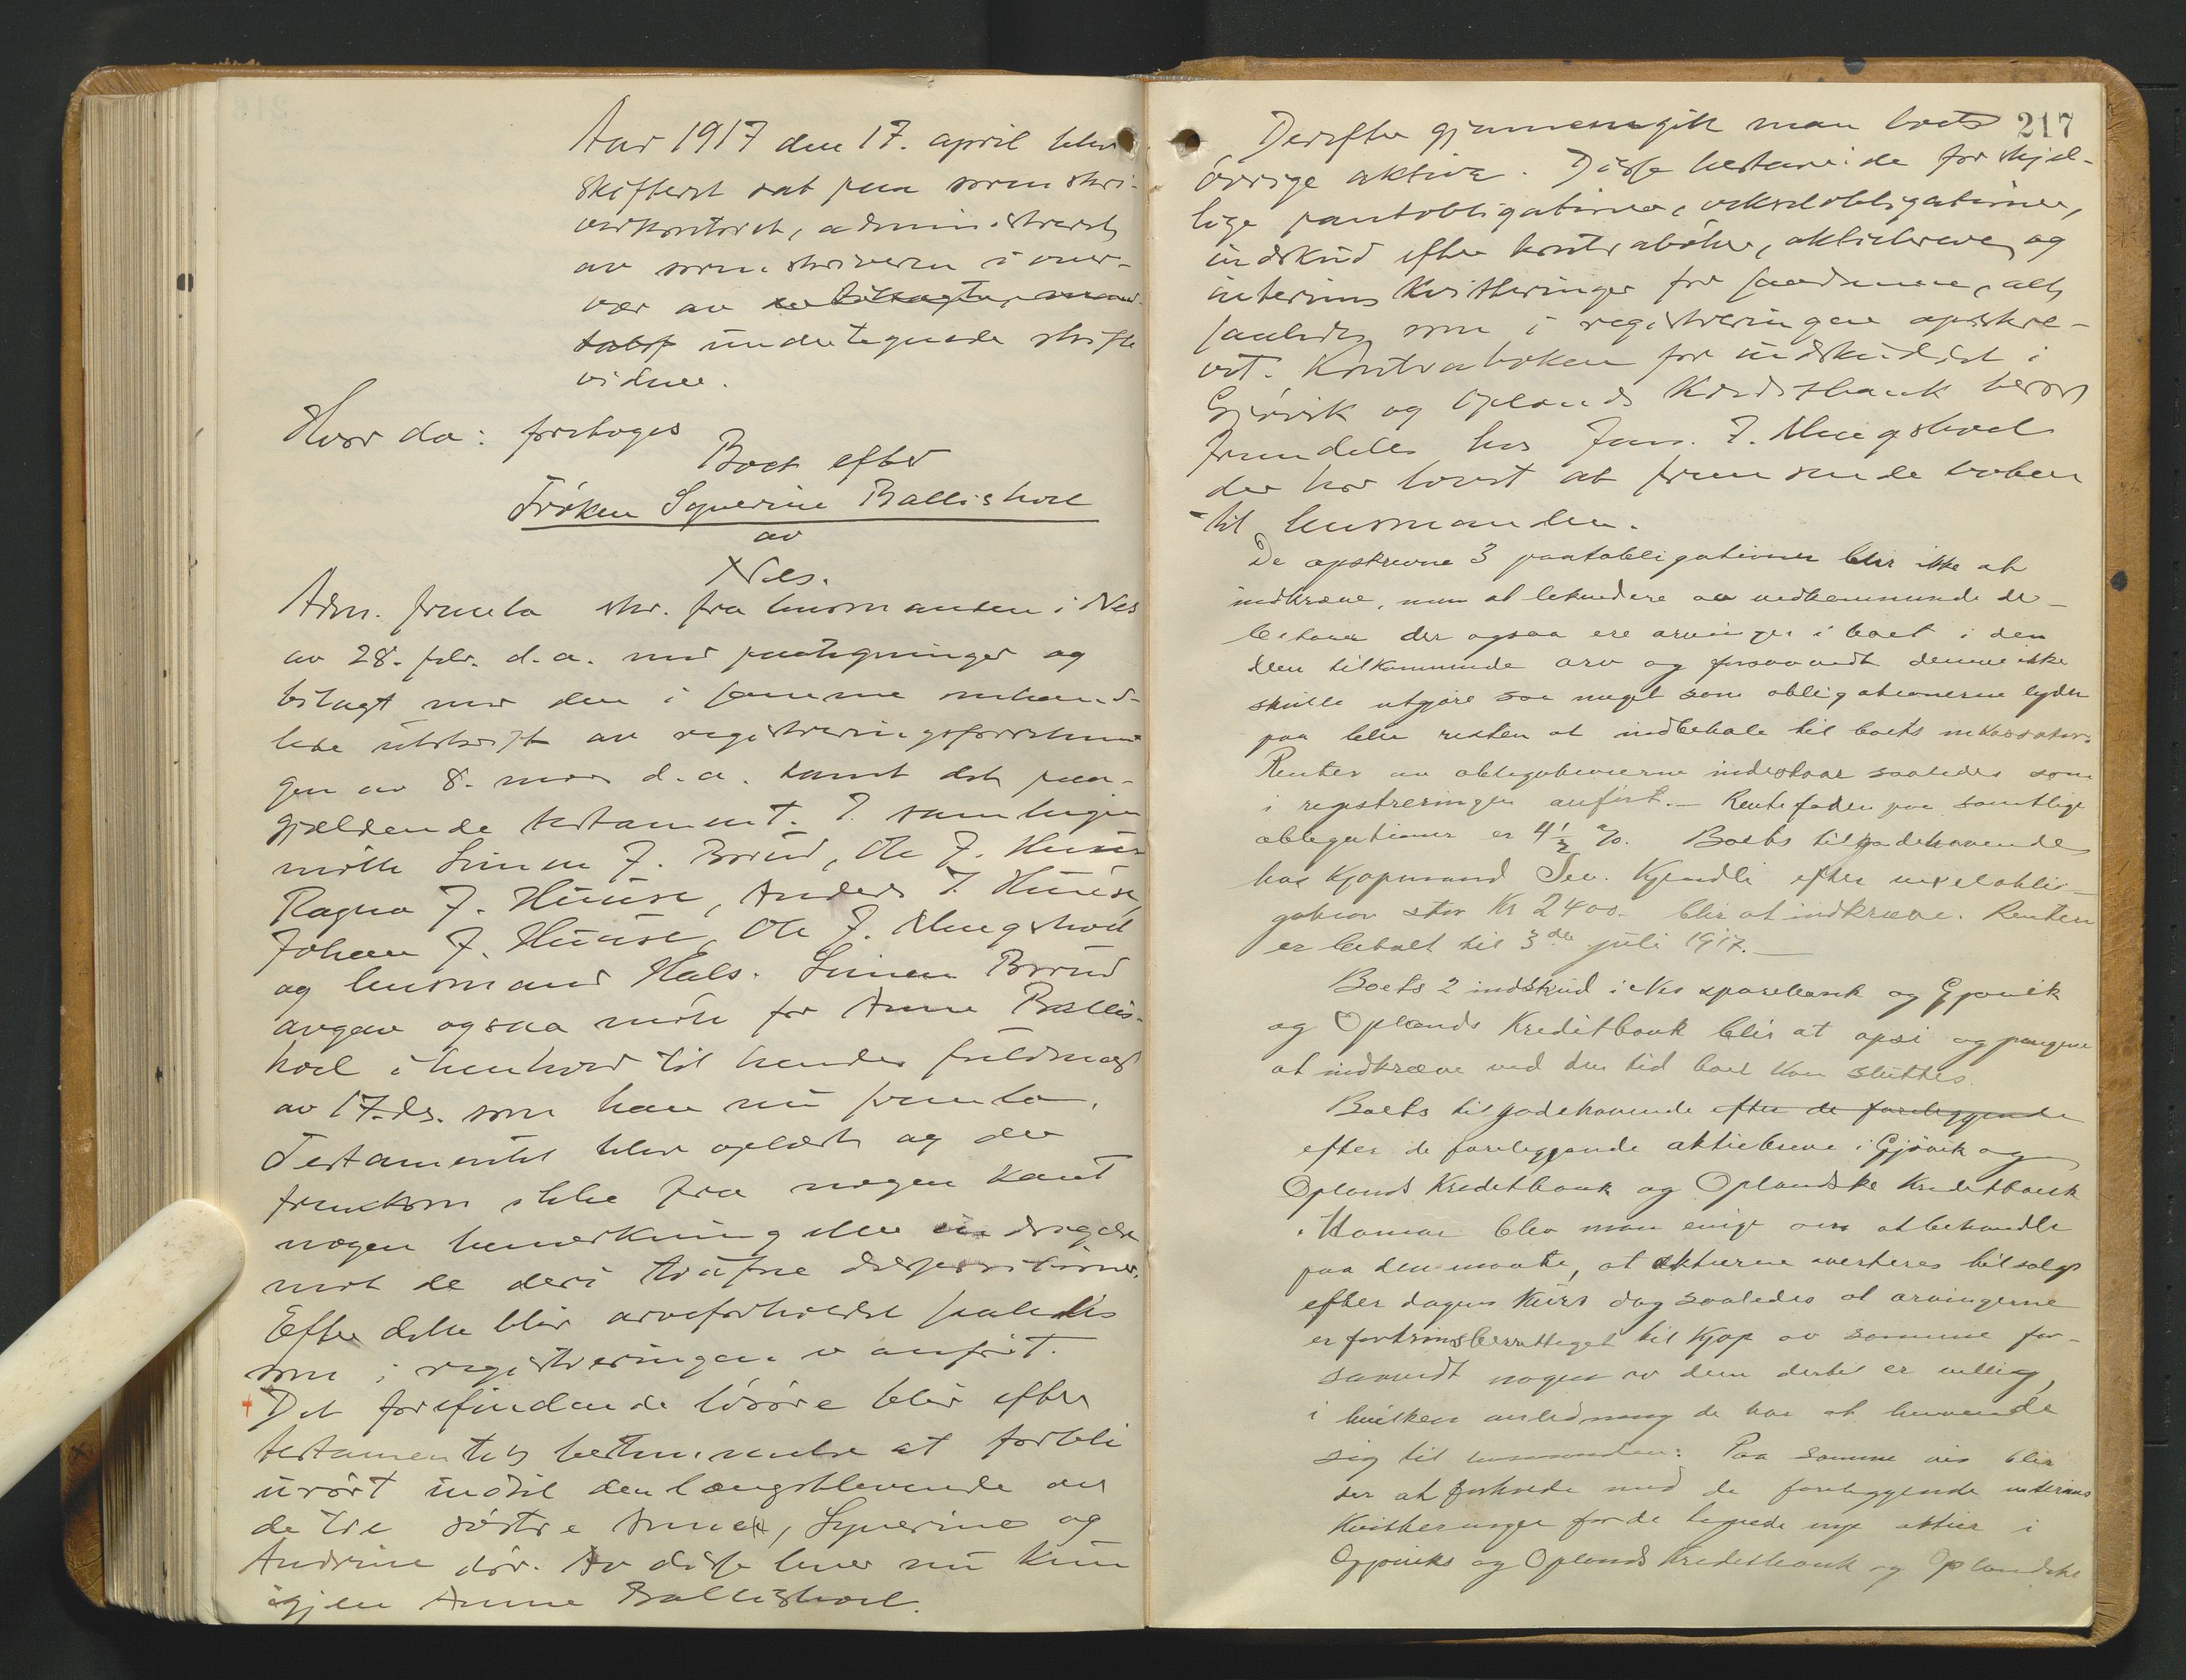 Aar 1917 den 17. april blev
skifteret sat paa sorenskri-
verkontoret, administreret
av sorenskriveren i over-
vær av
undertegnede skifte
vidner.
Hvor da: foretoges
Boet efter
Frøken Syverine Ballishoel
av
Nes.
Adm. fremla skr. fra lensmanden i Nes
av 28. febr. d.a. med paategninger og
bilagt med den i samme omhand-
lede utskrift av registreringsforretnin-
gen av 8. mars d.a. samt det paa-
gjældende testament. I samlingen
møtte Simen J. Brud, Ole J. Huuse
Ragna J. Huuse, Anders J. Huuse,
Johan J. Huuse, Ole J. Mengshoel
og lensmand Hals. Simen Brud
avgav ogsaa møte for Anne Ballis-
hoel i henhold til hendes fuldmagt
av 17. ds. som han nu fremla.
Testamentet blev oplæst og der
fremkom ikke fra nogen kant
nogen bemerkning eller indsigelse
mot de deri trufne dispositioner.
Efter dette blir arveforholdet saaledes
som i registreringen er anført.
Det forefindende løsøre blir efter
testamentets bestemmelse at forbli
urørt indtil den længstlevende av
de tre søstre Anne, Syverine og
Andrine dør. Av disse lever nu kun
igjen Anne Ballishoel.
217
Derefter gjennemgik man boets
øvrige aktiva. Disse bestaar i de forskjel-
lige pantobligationer, vekselobligationer,
indskud efter kontrabøker, aktiebreve og
interims kvitteringer for saadanne, alt
saaledes som i registreringen opskre-
vet. Kontraboken for indskuddet i
Gjøvik og Oplands Kreditbank beror
fremdeles hos Jens. J. Mengshoel
der har lovet at fremsende boken
til lensmanden.
De opskrevne 3 pantobligationer blir ikke at
indkræve, men at likvidere av vedkommende de-
bitorer der ogsaa ere arvinger i boet i den
dem tilkommende arv og forsaavidt denne ikke
skulle utgjøre saa meget som obligationerne lyder
paa blir resten at indbetale til boets inkassator.
Renter av obligationerne indestaar saaledes som
i registreringen anført. — Rentefoden paa samtlige
obligationer er 4½ %. Boets tilgodehavende
hos Kjøpmand Sev. Kjendli efter vexelobli-
gation stor Kr 2400. blir at indkræve. Renten
er betalt til 3die juli 1917. —
Boets 2 indskud i Nes sparebank og Gjøvik
og Oplands Kreditbank blir at opsi og pengene
at indkræve ved den tid boet kan sluttes.
Boets tilgodehavende efter de foreliggende
efter de foreliggende aktiebreve i Gjøvik og
Oplands Kreditbank og Oplandske Kreditbank
i Hamar blev man enige om at behandle
paa den maate, at aktierne averteres tilsalgs
efter dagens kurs dog saaledes at arvingerne
er fortrinsberettiget til kjøp av samme for-
saavidt nogen av dem dertil er villig,
i hvilken anledning de har at henvende
sig til lensmanden. Paa samme vis blir
der at forholde med de foreliggende interims
Kvitteringer for de tegnede nye aktier i
Gjøviks og Oplands Kreditbank og Oplandske